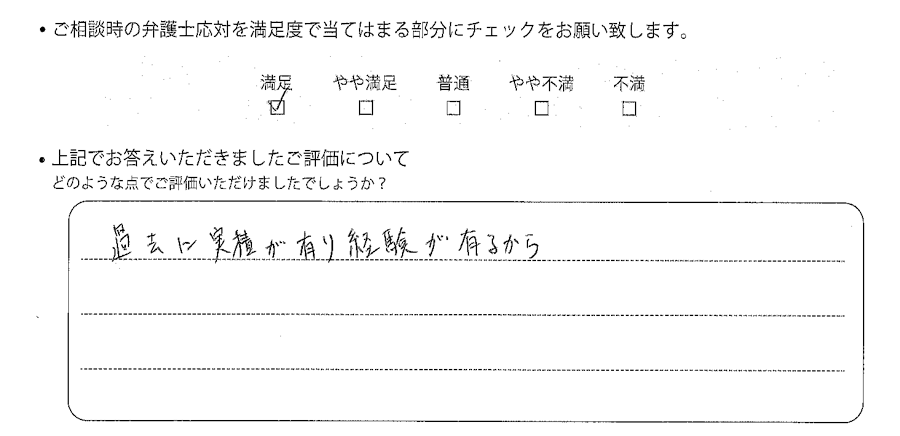 ・ご相談時の弁護士応対を満足度で当てはまる部分にチェックをお願い致します。
満足 やや満足 普通 やや不満 不満
☑ □ □ □ □
・上記でお答えいただきましたご評価について
どのような点でご評価いただけましたでしょうか？
過去に実積が有り経験が有るから